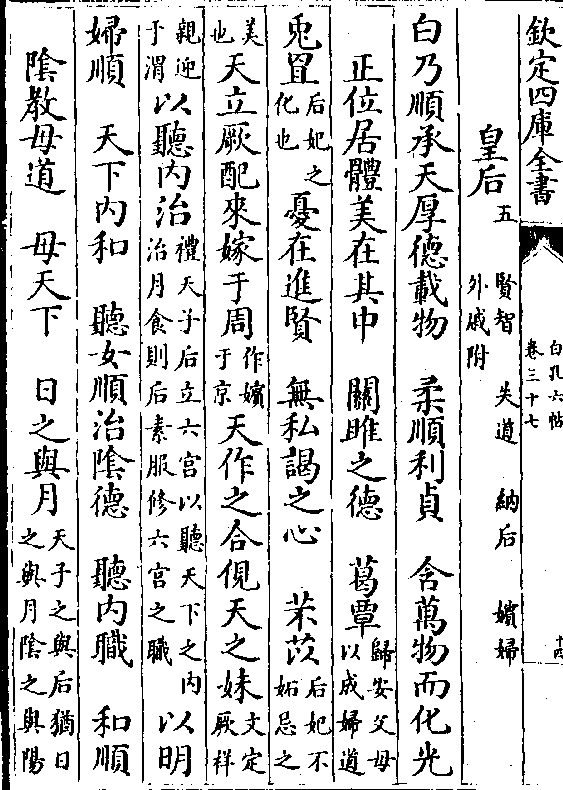 欽定四庫全書
白孔六帖
卷三十七
十四
皇后五 賢智 失道 納后 嬪婦
外戚附
白乃順承天厚德載物 柔順利貞 含萬物而化光
正位居體美在其中 關雎之德 葛覃歸安父母以成婦道
兎罝后妃之化也 憂在進賢 無私謁之心 芣苢后妃不妬忌之
美也 天立厥配來嫁于周作嬪于京 天作之合俔天之妹文定厥祥
親迎于渭 以聽內治禮天子后立六宮以聽天下之內治月食則后素服修六宮之職 以明
婦順 天下內和 聽女順治陰德 聽內職 和順
陰教母道 母天下 日之與月天子之與后猶日之與月陰之與陽